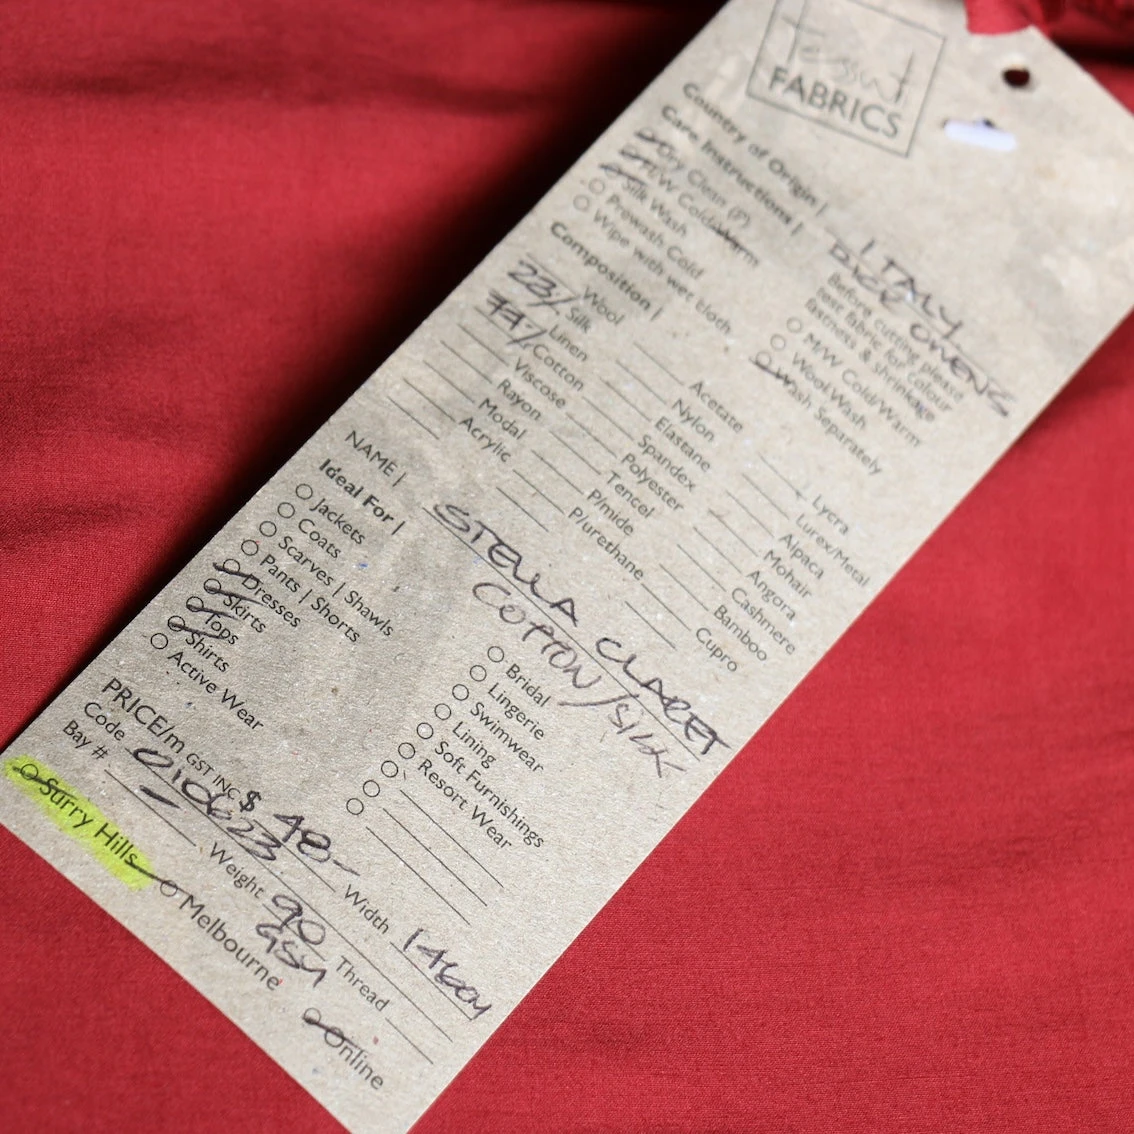 Tessuti
FABRICS
Country of Origin | ITALY
Care Instructions | RICK OWENS
Dry Clean (P)
H/W Cold/Warm
Silk Wash
Prewash Cold
Wipe with wet cloth
Before cutting please
test fabric for colour
fastness & shrinkage
M/W Cold/Warm
Wool Wash
Wash Separately
Composition |
Wool
23% Silk
Linen
77% Cotton
Viscose
Rayon
Modal
Acrylic
Acetate
Nylon
Elastane
Spandex
Polyester
Tencel
P/mide
P/urethane
Lycra
Lurex/Metal
Alpaca
Mohair
Angora
Cashmere
Bamboo
Cupro
NAME | STELLA CLARET
COTTON/SILK
Ideal For |
Jackets
Coats
Scarves | Shawls
Pants | Shorts
Dresses
Skirts
Tops
Shirts
Active Wear
Bridal
Lingerie
Swimwear
Lining
Soft Furnishings
Resort Wear
PRICE/m GST INC $ 48-
Code 010623 Width 146cm
Bay # - Weight 90 GSM Thread
Surry Hills Melbourne Online